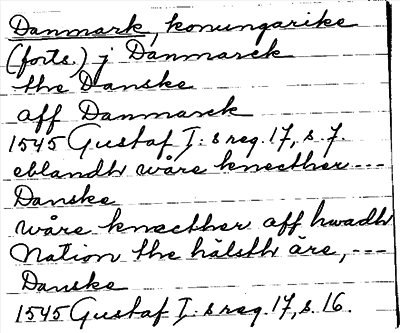 Danmark, konungarike
(forts.) j Danmarck
the Danske
aff Danmarck
1545 Gustaf I:s reg. 17, s. 7.
eblandh wåre knecther ---
Danske
wåre knecther aff hwadh
Nation the hälsth äre, ---
Danske
1545 Gustaf I:s reg. 17, s. 16.